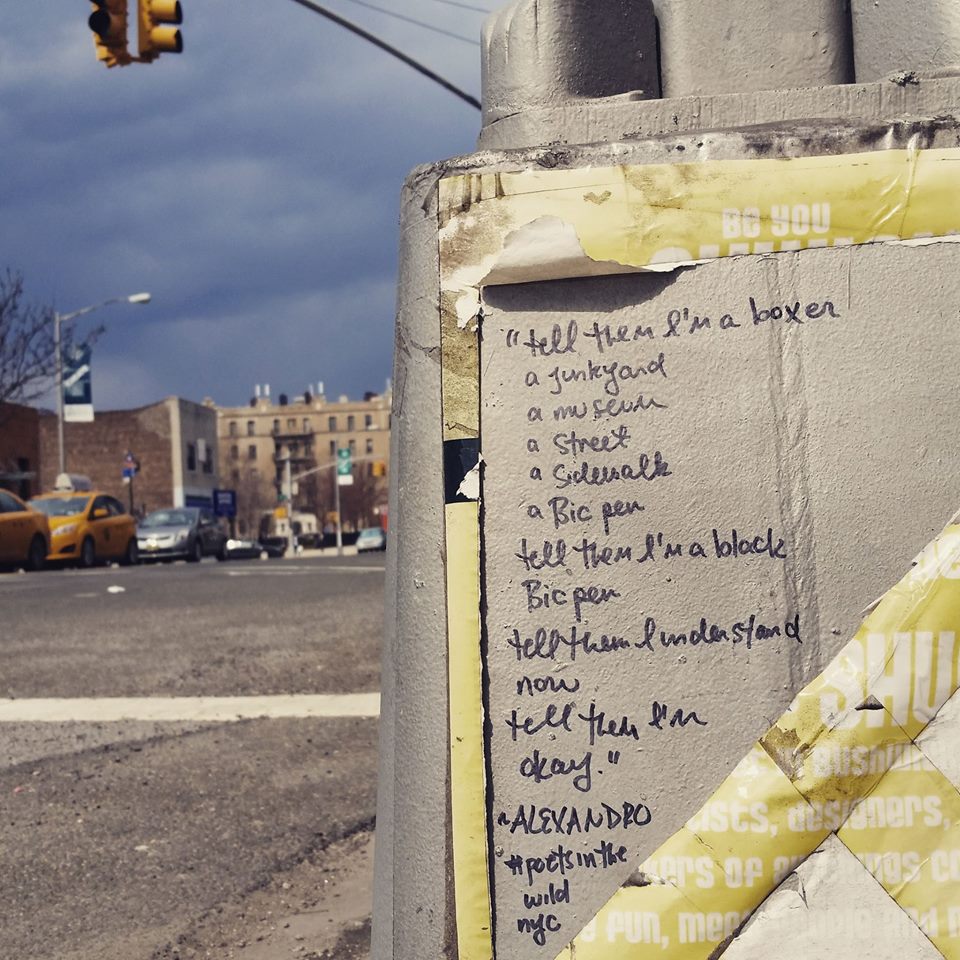 BE YOU
"tell them I'm a boxer
a junkyard
a museum
a street
a sidewalk
a Bic pen
tell them I'm a black
Bic pen
tell them I understand
now
tell them I'm
okay."
~ALEXANDRO
#poetsinthe
wild
nyc
designers,
fun,